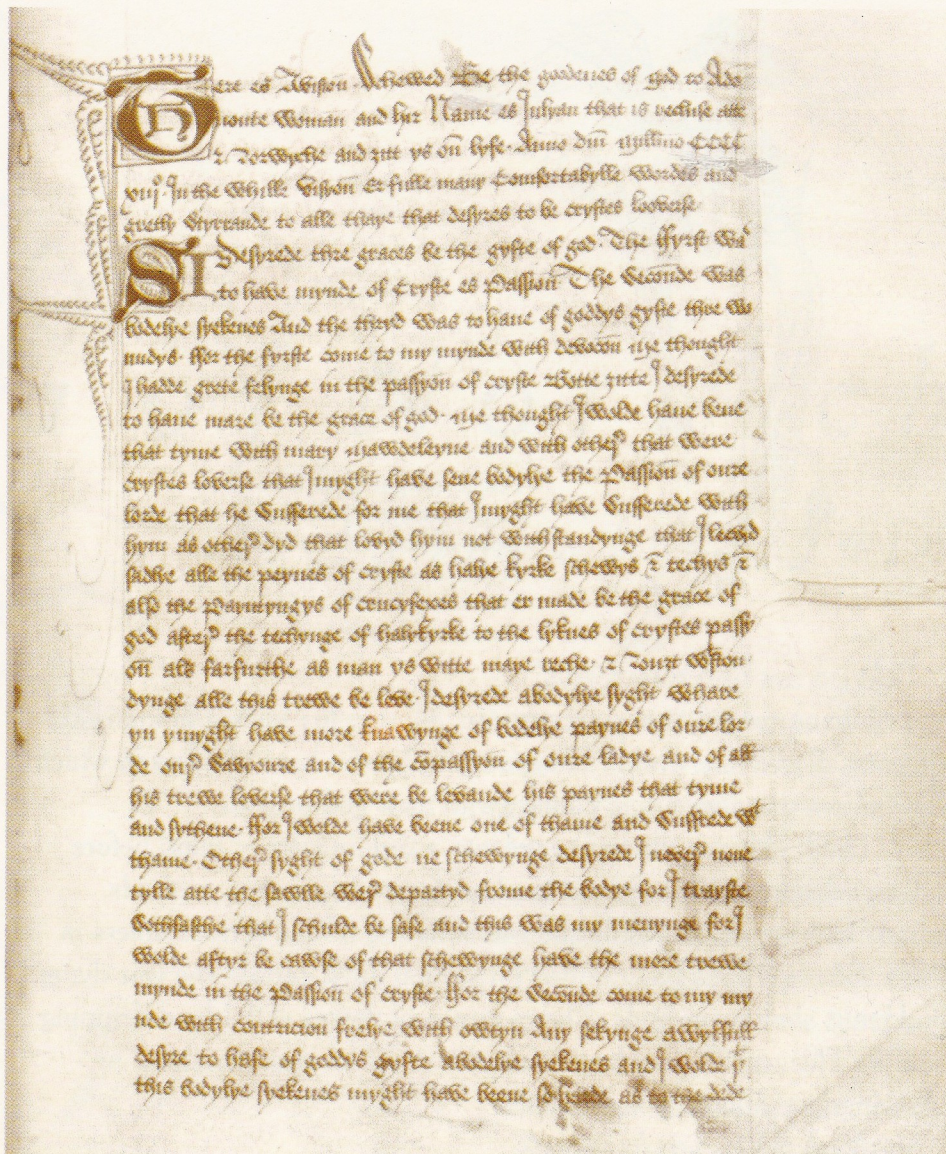 Here es Avisioñ Schewed Be the goodenes of god to Ade
uoute Woman and hir Name es Julyan that is recluse atte
Norwyche and ȝitt ys oñ lyfe. Anno dm̄ millīmo CCCC
xiijº. In the Whilke Visyoñ Er fulle many Comfortabylle Wordes and
gretly Styrrande to alle thaye that desyres to be crystes looverse
I Desyrede thre graces be the gyfte of god. The ffyrst Was
to have mynde of Cryste es Passioñ The Secoñde was
bodelye syekenes And the thryd was to haue of goddys gyfte thre wo
undys. ffor the fyrste come to my mynde with devocōn me thought
I hadde grete felynge in the passyoñ of cryste Botte ȝitte I desyrede
to haue mare be the grace of god. me thought I wolde haue bene
that tyme with mary mawdeleyne and with otheꝛ that were
crystes loverse that I myght have sene bodylye the Passioñ of oure
lorde that he Sufferede for me that I myght have Sufferede with
hym as otheꝛ dyd that lovyd hym not withstandynge that I leevyd
sadlye alle the peynes of cryste as halye kyrke schewys & techys &
also the Payntyngys of crucyfexes that er made be the grace of
god afteꝛ the techynge of halykyrke to the lyknes of crystes passy
oñ als farfurthe as man ys witte maye reche. Nouȝt wᵗston
dynge alle this trewe be leve. I desyrede abodylye syght whare
yn y myght have more knawynge of bodelye paynes of oure lor
de ouꝛ Savyoure and of the cōpassyoñ of oure ladye and of all
his trewe loverse that were be levande his paynes that tyme
and sythene. ffor I wolde have beene one of thame and Suffrede wᵗ
thame. Otheꝛ syght of gode ne schewynge desyrede I neveꝛ none
tylle atte the sawlle weꝛ departyd frome the bodye for I trayste
sothfastlye that I schulde be safe and this was my menynge for I
wolde aftyr be cawse of that schewynge have the more trewe
mynde in the Passioñ of cryste. ffor the Secoñde come to my my
nde with contricioñ frelye with owtyn Any sekynge awylfull
desyre to hafe of goddys gyfte abodelye syekenes and I wolde þᵗ
this bodylye syekenes myght have beene so harde as to the dede